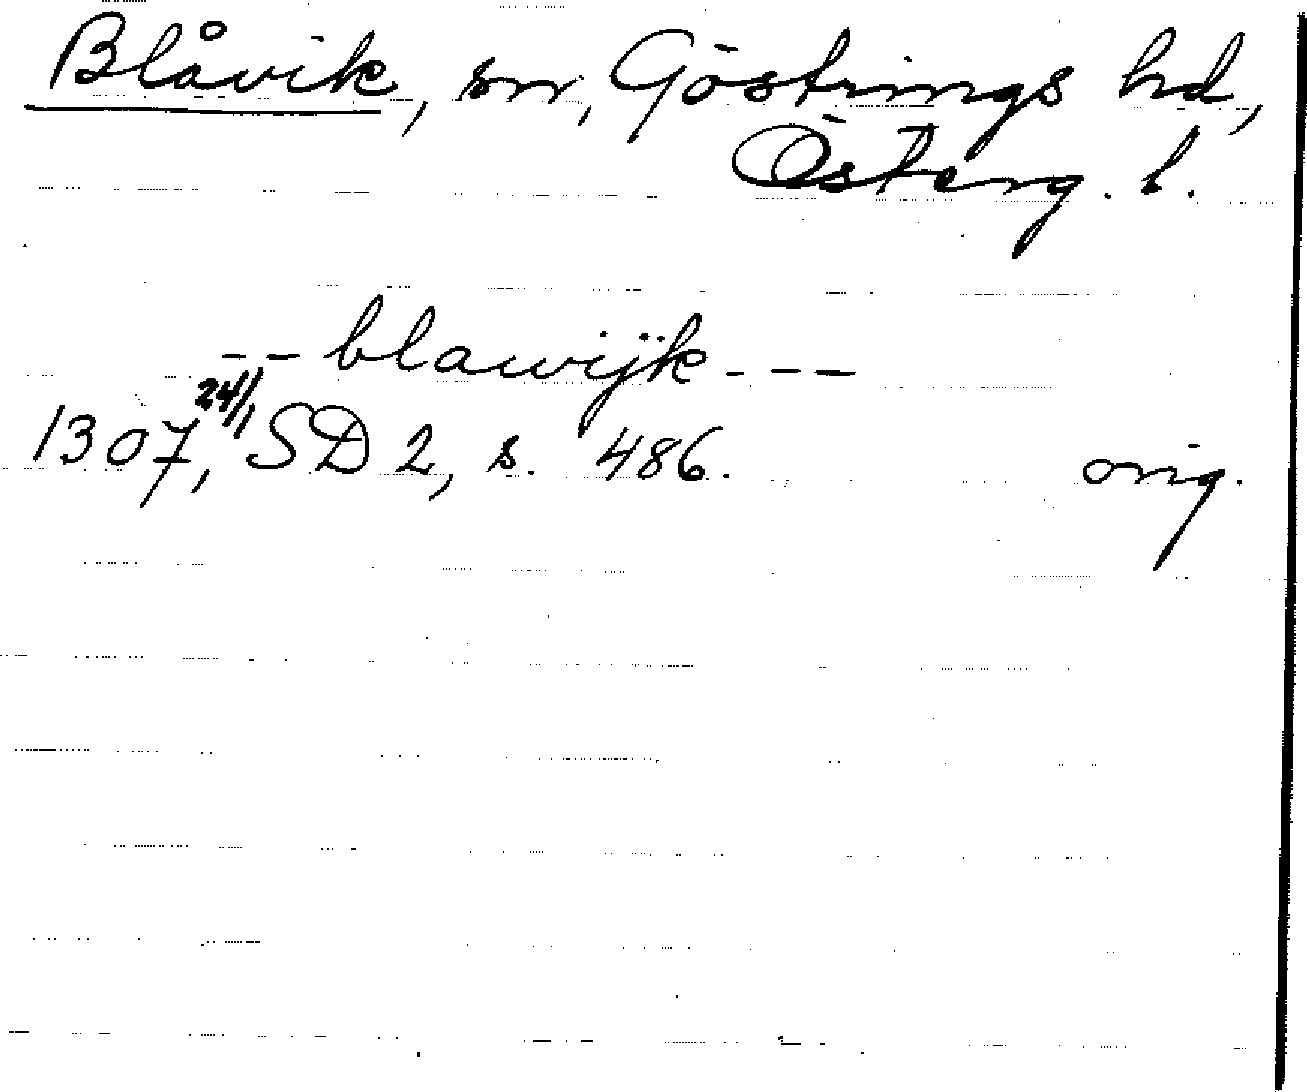 Blåvik, sn, Göstrings hd,
Österg. l.
-- blawijk ---
1307 24/1, SD 2, s. 486. orig.